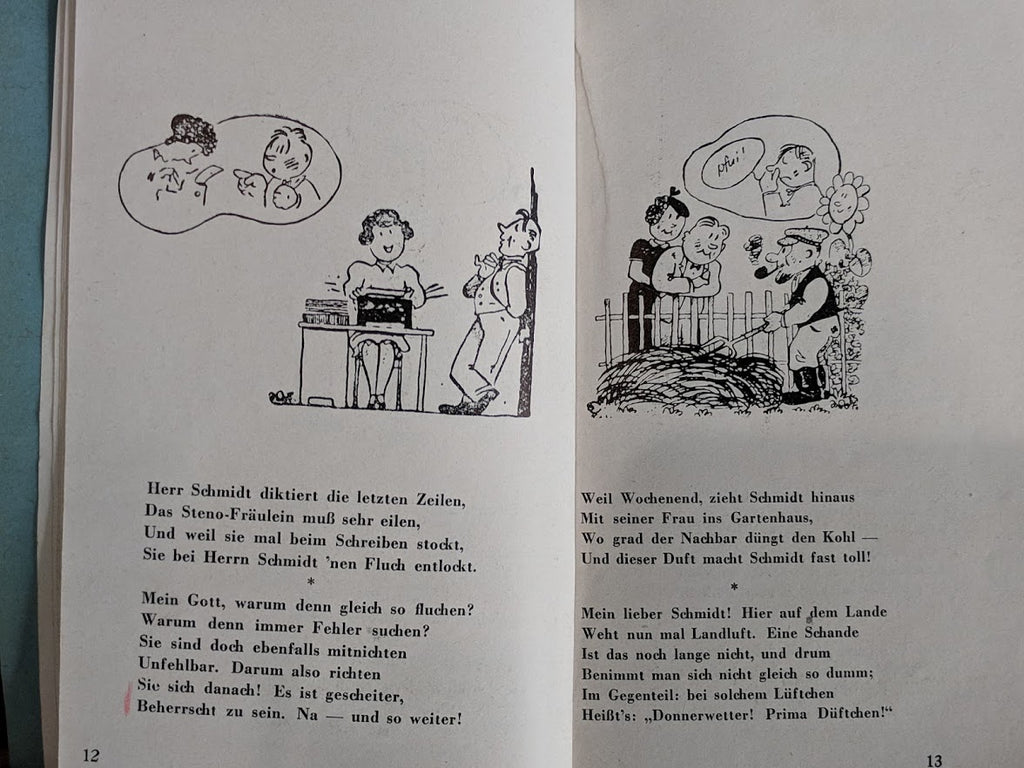 Herr Schmidt diktiert die letzten Zeilen,
Das Steno-Fräulein muß sehr eilen,
Und weil sie mal beim Schreiben stockt,
Sie bei Herrn Schmidt 'nen Fluch entlockt.
*
Mein Gott, warum denn gleich so fluchen?
Warum denn immer Fehler suchen?
Sie sind doch ebenfalls mitnichten
Unfehlbar. Darum also richten
Sie sich danach! Es ist gescheiter,
Beherrscht zu sein. Na — und so weiter!
12
pfui!
Weil Wochenend, zieht Schmidt hinaus
Mit seiner Frau ins Gartenhaus,
Wo grad der Nachbar düngt den Kohl —
Und dieser Duft macht Schmidt fast toll!
*
Mein lieber Schmidt! Hier auf dem Lande
Weht nun mal Landluft. Eine Schande
Ist das noch lange nicht, und drum
Benimmt man sich nicht gleich so dumm;
Im Gegenteil: bei solchem Lüftchen
Heißt's: „Donnerwetter! Prima Düftchen!“
13